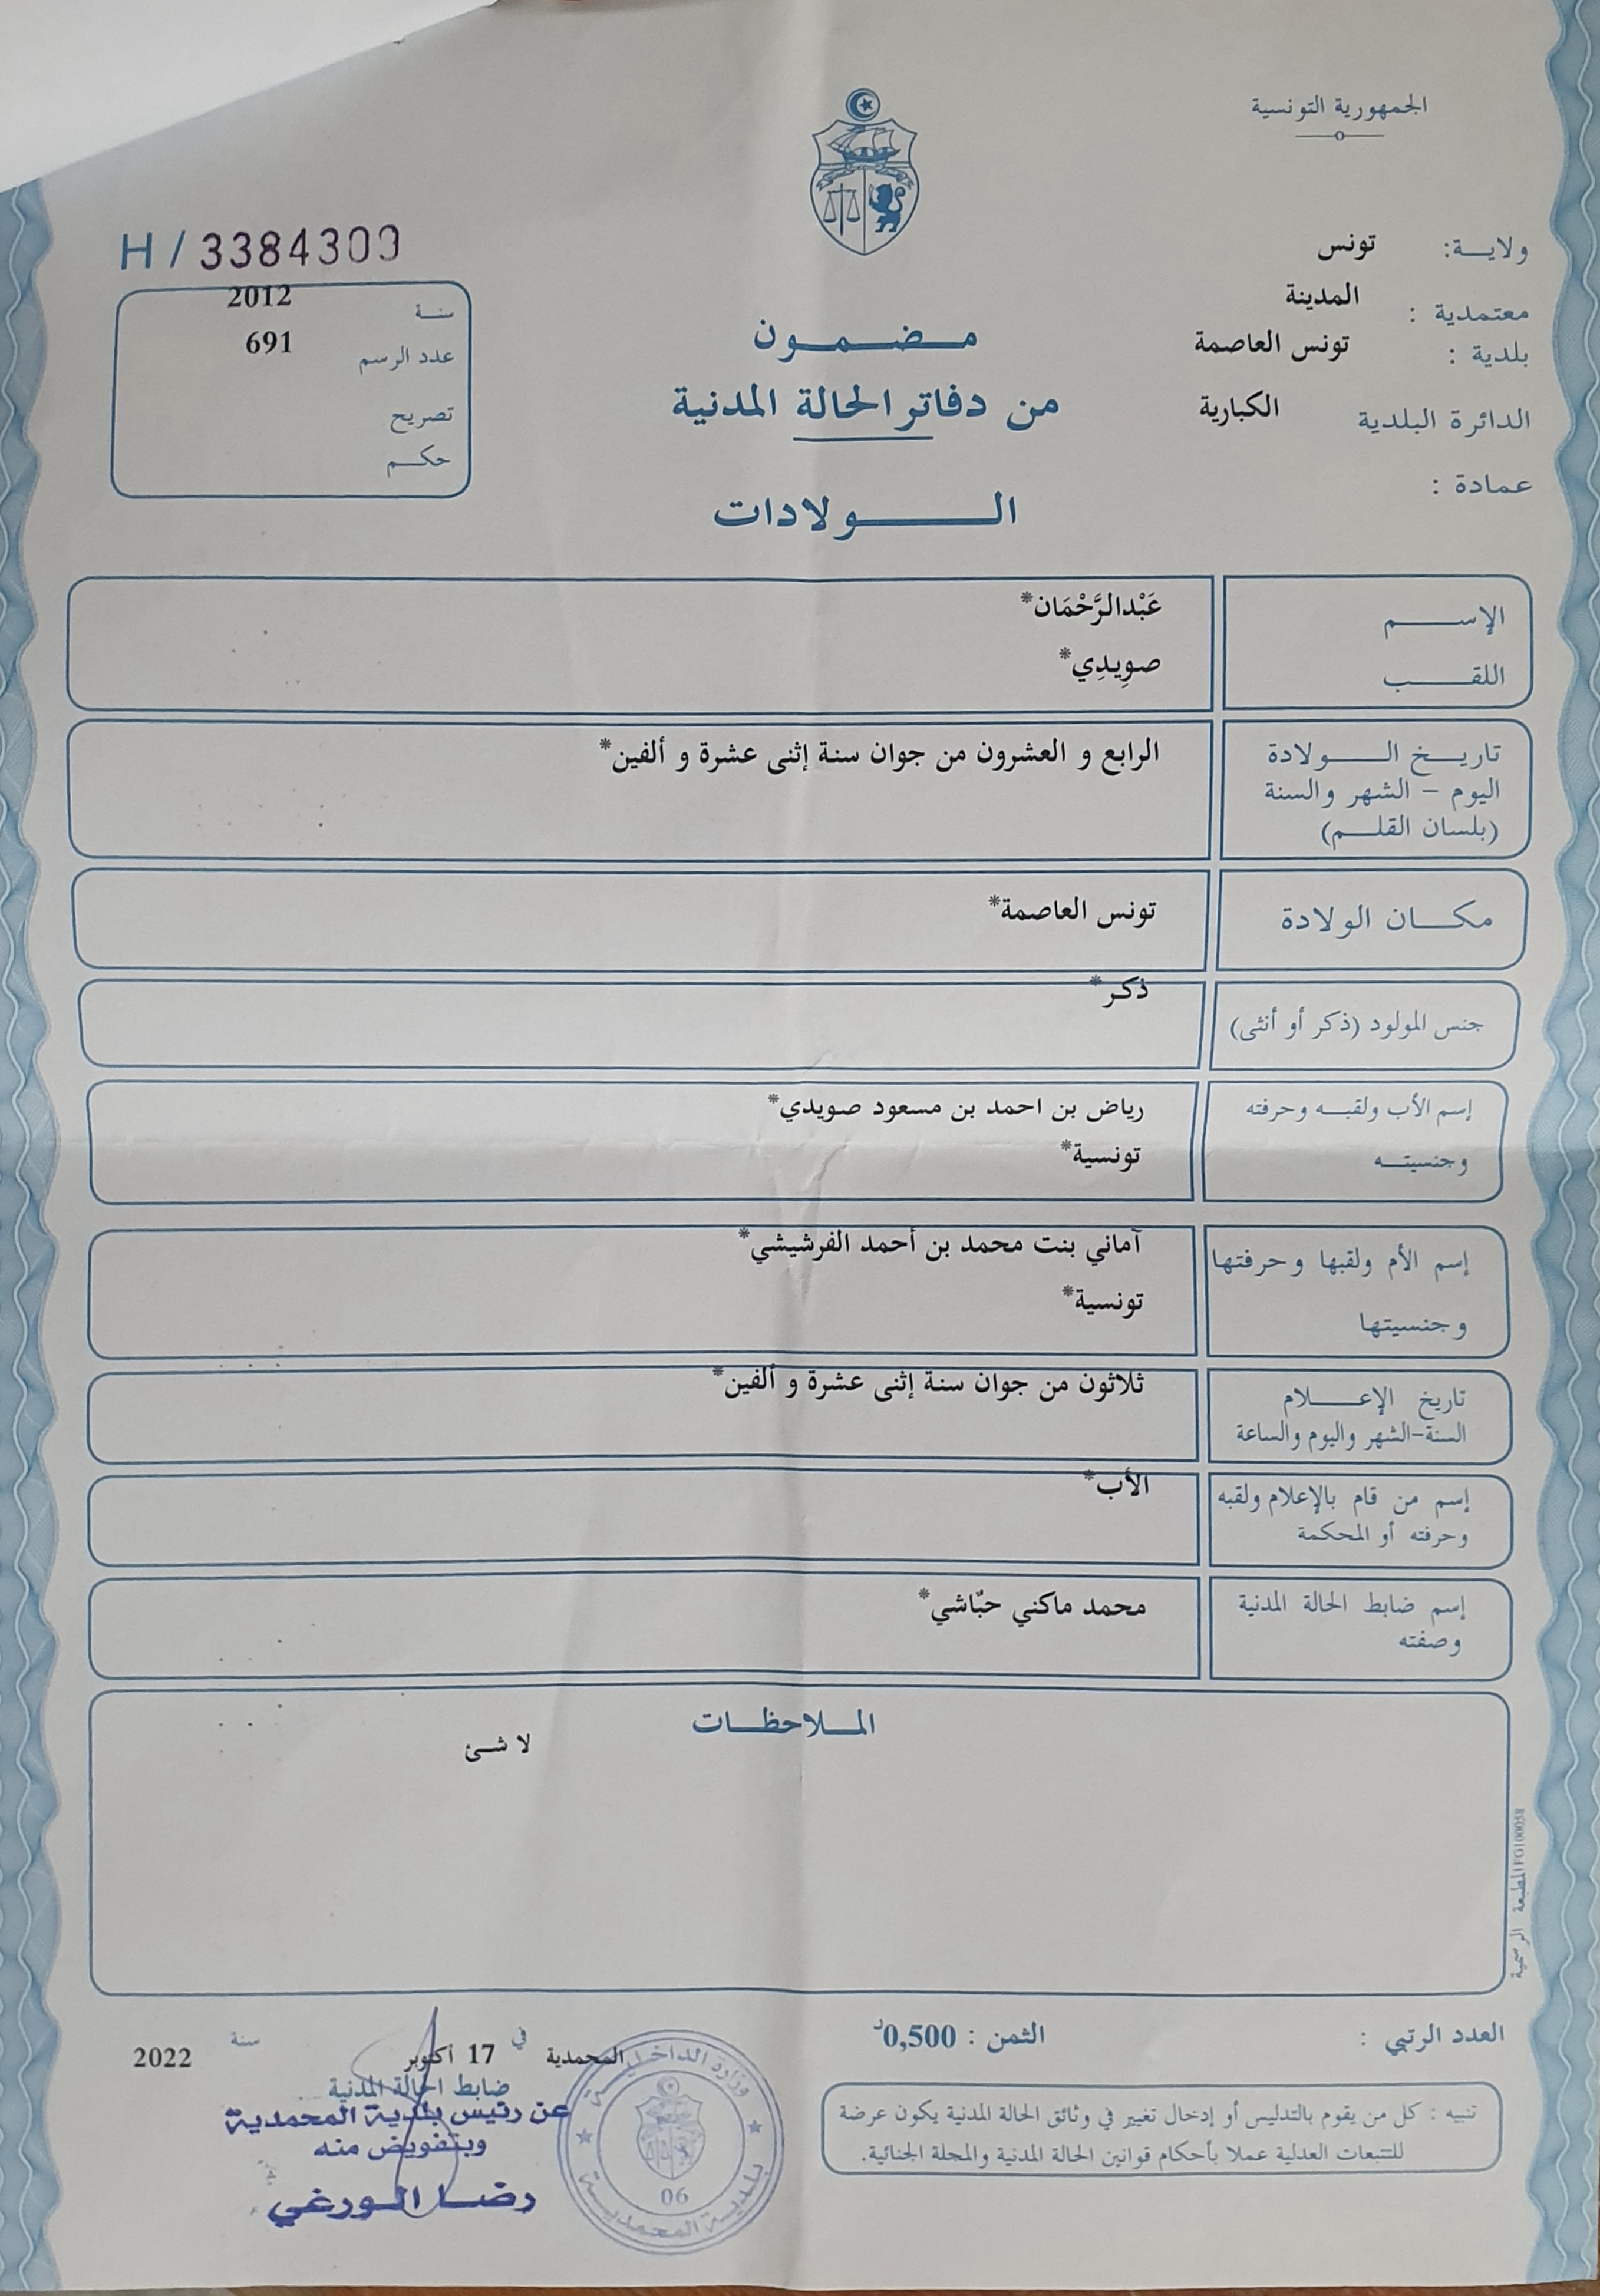 الجمهورية التونسية
ولاية: تونس
معتمدية : المدينة
بلدية : تونس العاصمة
الدائرة البلدية الكبارية
عمادة :
H / 3384309
سنة 2012
عدد الرسم 691
تصريح
حكم
مضمون
من دفاتر الحالة المدنية
الولادات
الإسم عَبْدالرَّحْمَان*
اللقب صوِيدِي*
تاريخ الولادة الرابع و العشرون من جوان سنة إثنى عشرة و ألفين*
اليوم - الشهر والسنة
(بلسان القلم)
مكان الولادة تونس العاصمة*
جنس المولود (ذكر أو أنثى) ذكر*
إسم الأب ولقبه وحرفته رياض بن احمد بن مسعود صويدي*
وجنسيته تونسية*
إسم الأم ولقبها وحرفتها آماني بنت محمد بن أحمد الفرشيشي*
وجنسيتها تونسية*
تاريخ الإعلام ثلاثون من جوان سنة إثنى عشرة و ألفين*
السنة-الشهر واليوم والساعة
إسم من قام بالإعلام ولقبه الأب*
وحرفته أو المحكمة
إسم ضابط الحالة المدنية محمد ماكني حبّاشي*
وصفته
الملاحظات
لا شئ
المطبعة الرسمية FG100058
العدد الرتبي :
الثمن : 0,500د
تنبيه : كل من يقوم بالتدليس أو إدخال تغيير في وثائق الحالة المدنية يكون عرضة
للتتبعات العدلية عملا بأحكام قوانين الحالة المدنية والمجلة الجنائية.
المحمدية في 17 أكتوبر سنة 2022
ضابط الحالة المدنية
عن رئيس بلدية المحمدية
وبتفويض منه
رضا الورغي
وزارة الداخلية
بلدية المحمدية
06